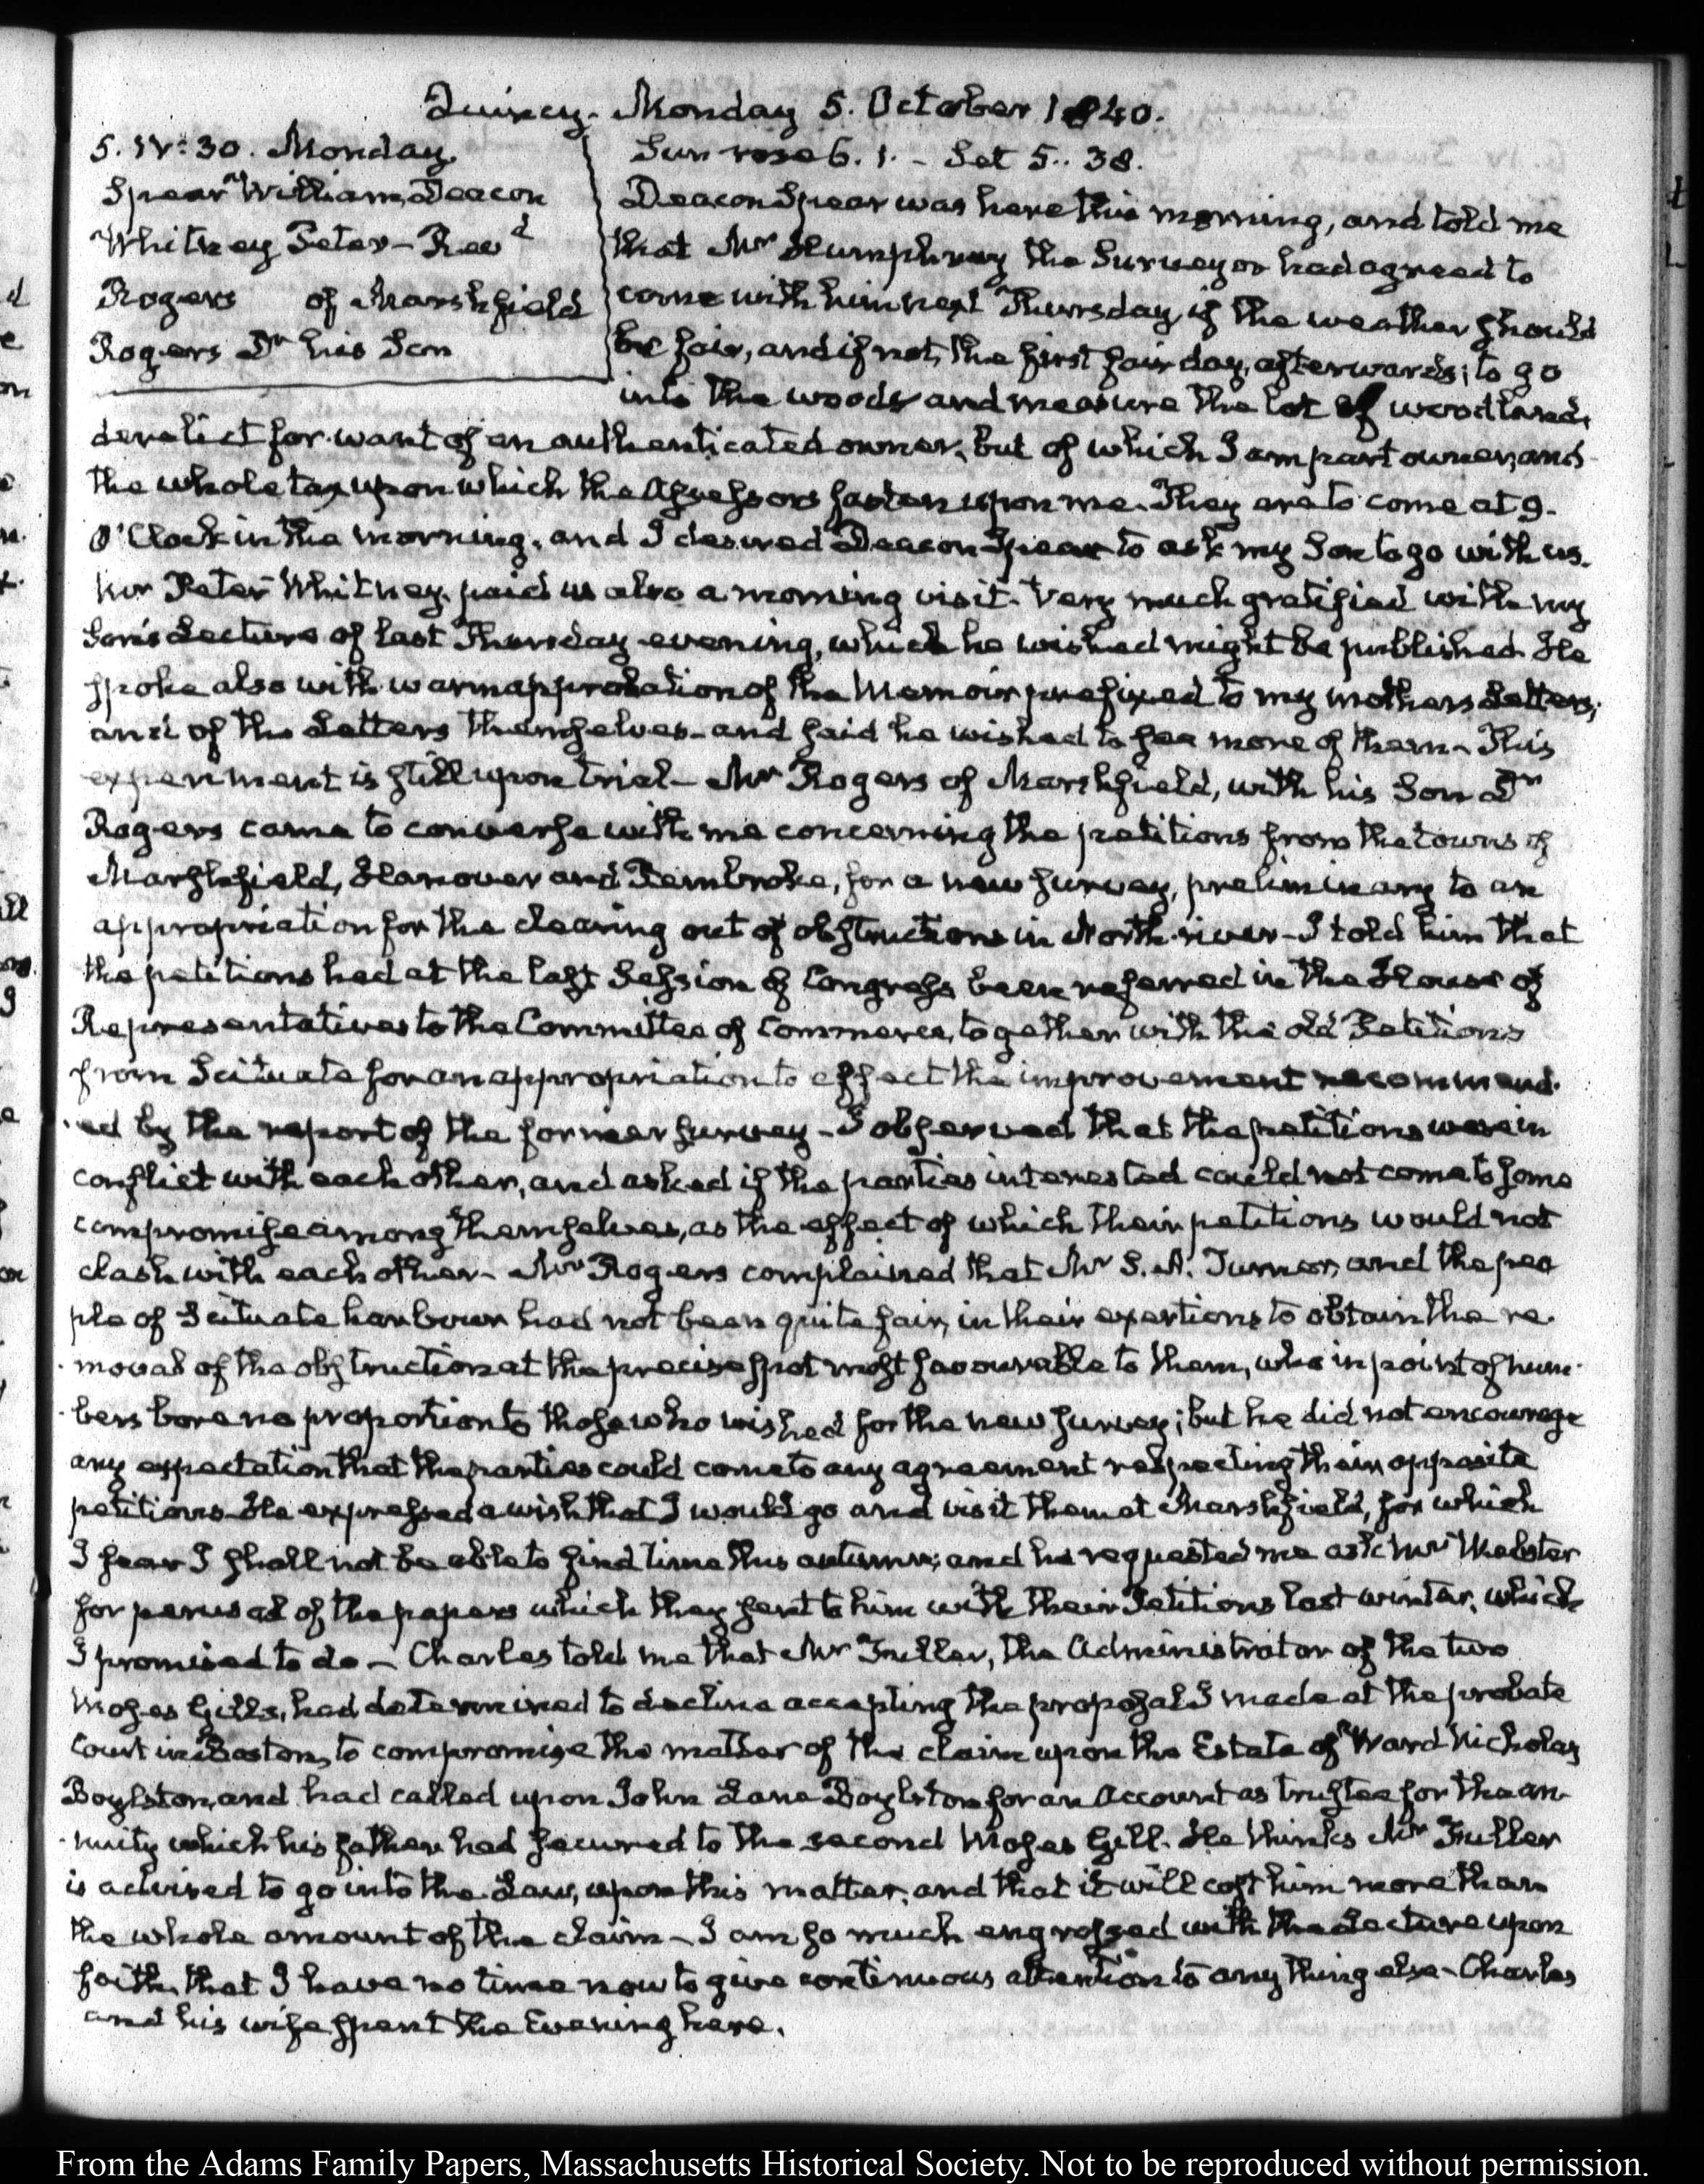 Quincy. Monday 5. October 1840.
5. IV:30. Monday.
Spear William, Deacon
Whitney Peter - Revd
Rogers of Marshfield
Rogers Dr his Son
Sun rose 6. 1. - Set 5.. 38.
Deacon Spear was here this morning, and told me
that Mr Humphrey the Surveyor had agreed to
come with him next Thursday if the weather should
be fair, and if not, the first fair day, afterwards; to go
into the woods and measure the lot of woodland,
derelict for want of an authenticated owner, but of which I am part owner, and
the whole tax upon which the Assessors fasten upon me. They are to come at 9.
O'Clock in the morning, and I desired Deacon Spear to ask my Son to go with us.
Mr Peter Whitney, paid us also a morning visit. Very much gratified with my
Son's Lecture of last Thursday evening, which he wished might be published. He
spoke also with warm approbation of the Memoir prefixed to my mothers Letters,
and of the Letters themselves - and said he wished to see more of them - This
experiment is still upon trial - Mr Rogers of Marshfield, with his Son Dr
Rogers came to converse with me concerning the petitions from the towns of
Marshfield, Hanover and Pembroke, for a new survey, preliminary to an
appropriation for the clearing out of obstructions in North-river - I told him that
the petitions had at the last Session of Congress been referred in the House of
Representatives to the Committee of Commerce, together with the old Petitions
from Scituate for an appropriation to effect the improvement recommend-
-ed by the report of the former survey - I observed that the petitions were in
conflict with each other, and asked if the parties interested could not come to some
compromise among themselves, as the effect of which their petitions would not
clash with each other - Mr Rogers complained that Mr S. A. Turner, and the peo
ple of Scituate harbour had not been quite fair, in their exertions to obtain the re-
-moval of the obstruction at the precise spot most favourable to them, who in point of num-
-bers bore no proportion to those who wished for the new survey; but he did not encourage
any expectation that the parties could come to any agreement respecting their opposite
petitions. He expressed a wish that I would go and visit them at Marshfield, for which
I fear I shall not be able to find time this autumn; and he requested me ask Mr Webster
for perusal of the papers which they sent to him with their Petitions last winter, which
I promised to do - Charles told me that Mr Fuller, the Administrator of the two
Moses Gills, had determined to decline accepting the proposal I made at the probate
Court in Boston, to compromise the matter of the claim upon the Estate of Ward Nicholas
Boylston, and had called upon John Lane Boylston for an Account as trustee for the an-
-nuity which his father had secured to the second Moses Gill. He thinks Mr Fuller
is advised to go into the Law, upon this matter, and that it will cost him more than
the whole amount of the claim - I am so much engrossed with the Lecture upon
faith, that I have no time now to give continuous attention to any thing else - Charles
and his wife spent the Evening here.
From the Adams Family Papers, Massachusetts Historical Society. Not to be reproduced without permission.